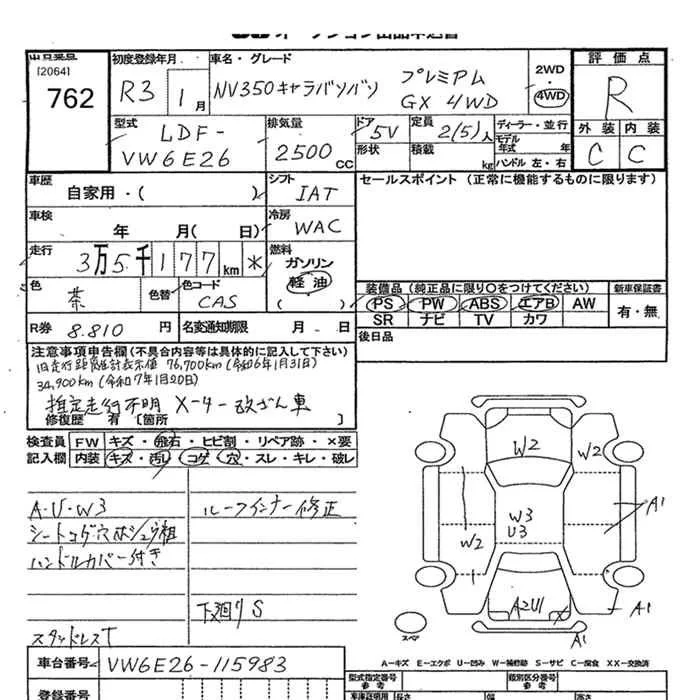 出品番号 初度登録年月 車名・グレード 評価点
[2064]
762
R3 1月
NV350キャラバンバン プレミアム GX 4WD
2WD・4WD
R
型式 排気量 ドア 定員 ディーラー・並行
LDF-VW6E26
2500cc
5V 2(5)人
形状 積載 kg
モデル年式 年
ハンドル 左・右
外装 内装
C C
車歴 シフト セールスポイント (正常に機能するものに限ります)
自家用・( ) IAT
車検 冷房
年 月( 日) WAC
走行 燃料
3万5千177km * ガソリン
軽油
( )
色 色替 色コード
茶 CAS
装備品(純正品に限り○をつけてください) 新車保証書
PS PW ABS エアB AW 有・無
SR ナビ TV カワ
R券 8.810円 名変通知期限 月 日
後日品
注意事項申告欄(不具合内容等は具体的に記入して下さい)
旧走行距離計表示値 76,700km (令和6年1月31日)
34,900km (令和7年1月20日)
推定走行不明 メーター改ざん車
修復歴 有 〔箇所
検査員記入欄
FW キズ・飛石・ヒビ割・リペア跡・×要
内装 キズ・汚れ・コゲ・穴・スレ・キレ・破レ
A・U・W3 ルーフインナー修正
シートコゲ穴
ハンドルカバー付き
下廻りS
スタッドレスT
W2
W3
U3
W2
A1
A2U1
A1
A1
スペア
A―キズ E―エクボ U―凹み W―補修跡 S―サビ C―腐食 XX―交換済
車台番号 VW6E26-115983
型式指定番号 参考 類別区分番号 参考
登録番号 車庫証明用 長さ 幅 高さ